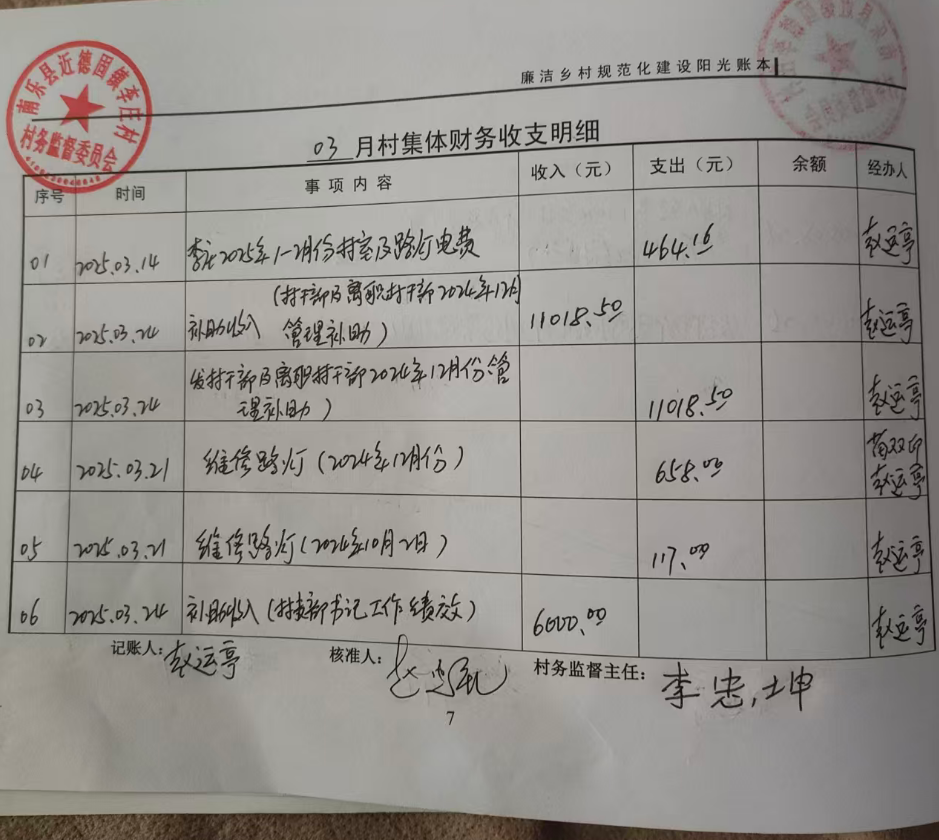 南乐县近德固镇李庄村
村务监督委员会
廉洁乡村规范化建设阳光账本
03月村集体财务收支明细
序号 时间 事项内容 收入（元） 支出（元） 余额 经办人
01 2025.03.14 李庄2025年1-2月份村室及路灯电费 464.16 赵运亭
02 2025.03.24 补助收入（村干部及离职村干部2024年12月管理补助） 11018.50 赵运亭
03 2025.03.24 发村干部及离职村干部2024年12月份管理补助） 11018.50 赵运亭
04 2025.03.21 维修路灯（2024年12月份） 658.00 赵运亭
05 2025.03.21 维修路灯（2024年10月2日） 117.00 赵运亭
06 2025.03.24 补助收入（村支部书记工作绩效） 6000.00 赵运亭
记账人：赵运亭 核准人： 村务监督主任：李忠坤
7